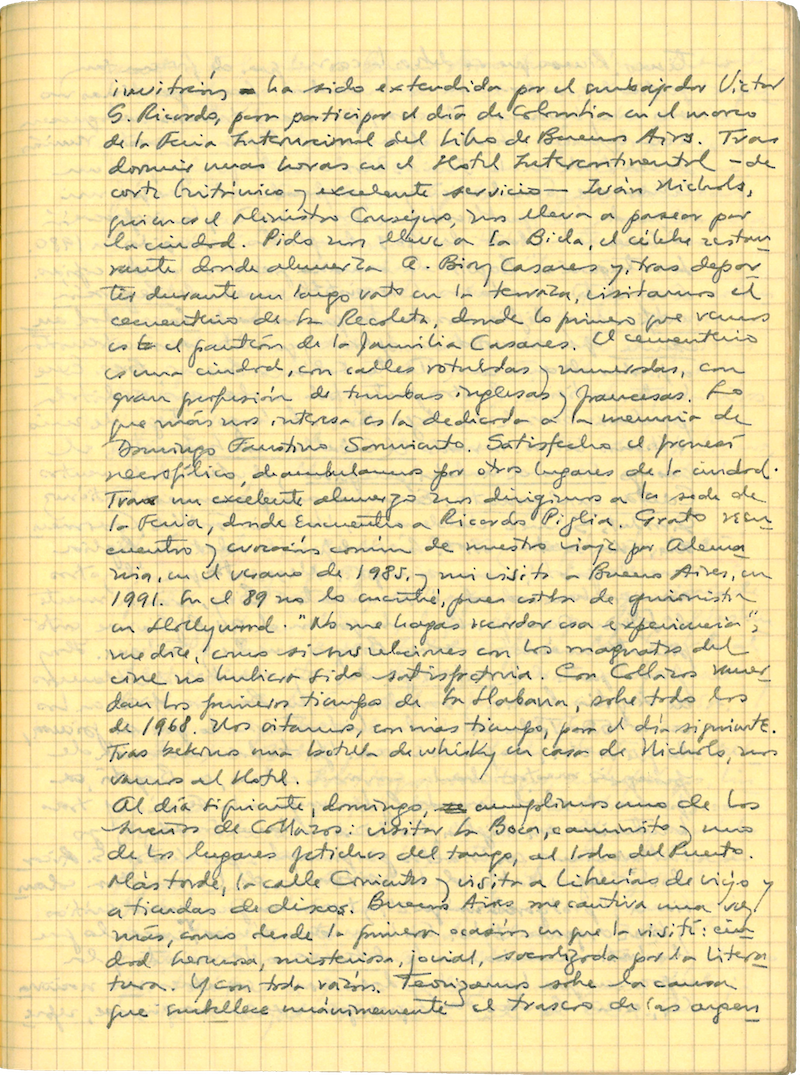 invitación ha sido extendida por el embajador Víctor
G. Ricardo, para participar el día de Colombia en el marco
de la Feria Internacional del Libro de Buenos Aires. Tras
dormir unas horas en el Hotel Intercontinental —de
corte británico y excelente servicio— Iván Nichols,
quien es el Ministro Consejero, nos lleva a pasear por
la ciudad. Pido nos lleve a La Biela, el célebre restau-
rante donde almuerza A. Bioy Casares y, tras depar-
tir durante un largo rato en la terraza, visitamos el
cementerio de La Recoleta, donde lo primero que vemos
es el panteón de la familia Casares. El cementerio
es una ciudad, con calles rotuladas y numeradas, con
gran profusión de tumbas inglesas y francesas. Lo
que más nos interesa es la dedicada a la memoria de
Domingo Faustino Sarmiento. Satisfecho el frenesí
necrofílico, deambulamos por otros lugares de la ciudad.
Tras un excelente almuerzo nos dirigimos a la sede de
la Feria, donde encuentro a Ricardo Piglia. Grato reen-
cuentro y evocación común de nuestro viaje por Alema-
nia, en el verano de 1985, y mi visita a Buenos Aires, en
1991. En el 89 no lo encontré, pues estaba de guionista
en Hollywood. "No me hagas recordar esa experiencia",
me dice, como si sus relaciones con los magnates del
cine no hubiera sido satisfactoria. Con Collazos recuer-
dan los primeros tiempos de La Habana, sobre todo los
de 1968. Nos citamos, con más tiempo, para el día siguiente.
Tras bebernos una botella de whisky en casa de Nichols, nos
vamos al Hotel.
Al día siguiente, domingo, cumplimos uno de los
sueños de Collazos: visitar La Boca, caminito y uno
de los lugares fetiches del tango, al lado del Puerto.
Más tarde, la calle Corrientes y visita a librerías de viejo y
a tiendas de discos. Buenos Aires me cautiva una vez
más, como desde la primera ocasión en que la visité: ciu-
dad hermosa, misteriosa, jovial, sacralizada por la litera-
tura. Y con toda razón. Teorizamos sobre la causa
que embellece unánimemente el trasero de las argen-